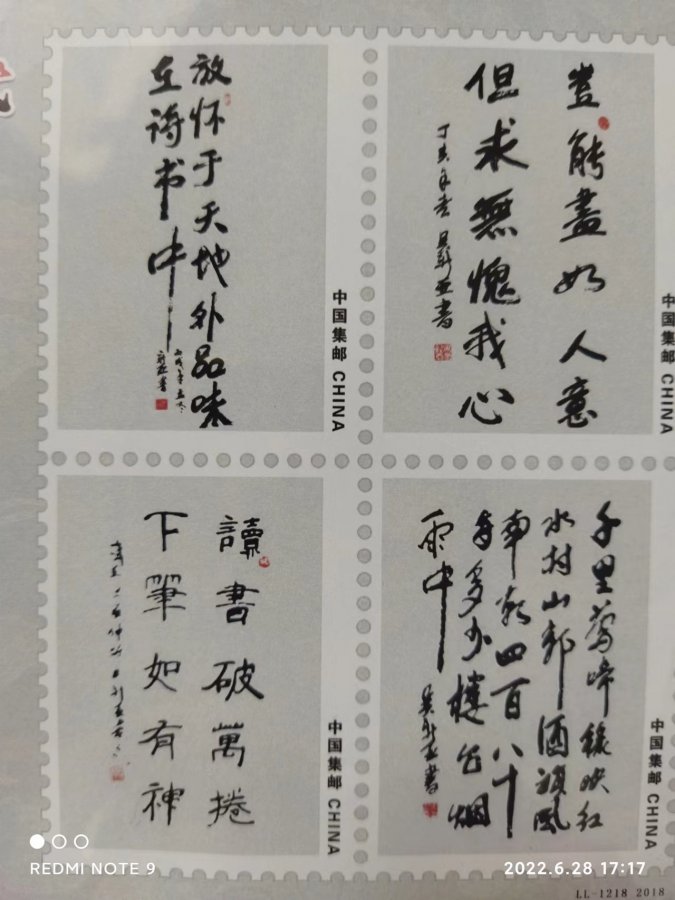 放怀于天地外品味
在诗书中
丙戌年
中国集邮 CHINA
岂能盡如人意
但求無愧我心
丁亥年
書
中国集邮 CHINA
讀書破萬捲
下筆如有神
中国集邮 CHINA
千里莺啼绿映红
水村山郭酒旗風
南朝四百八十
寺多少樓台烟
雨中
書
中国集邮 CHINA
REDMI NOTE 9
2022.6.28 17:17
LL-1218 2018